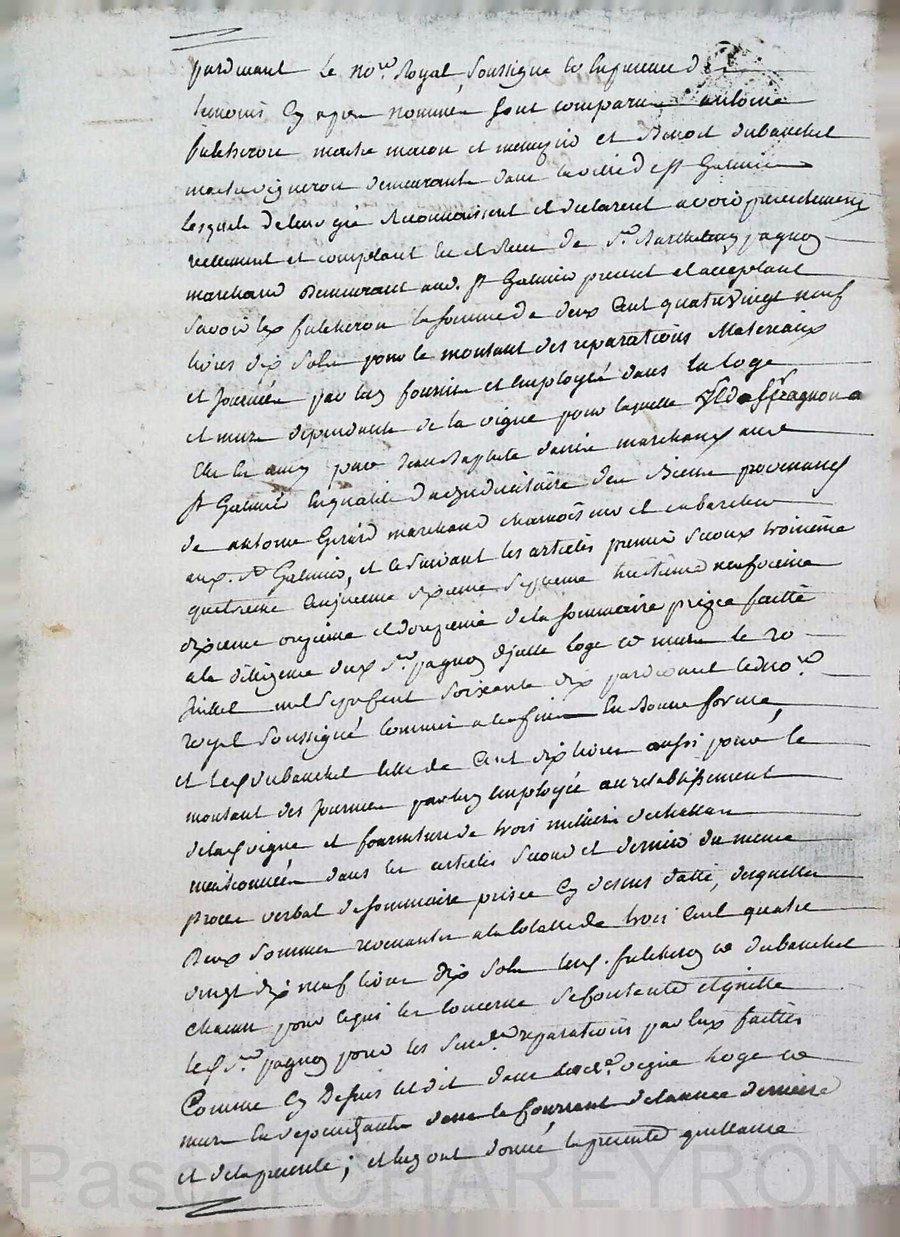 pardevant Le no.re Royal, Soussigné et En presence des
temoins Cy apres nommés sont comparus antoine
fulcheron maitre macon et Benoit dubanchet
maitre vigneron demeurants dans la ville de st Galmier
Lesquels de leur gré Reconnaissent et declarent avoir presentement
reellement et comptant de Sr. Barthelemy pagnon
marchand Demeurant aud. st Galmier present et acceptant
savoir led fulcheron la somme de deux Cent quatre vingt neuf
livres dix sols pour le montant des reparations Materiaux
et Journées par luy fournis et Employés dans la loge
et murs dependants de la vigne pour laquelle pagnon a
par Jean Baptiste marchand aud
st Galmier En qualité d'adjudicataire des Biens provenants
de antoine Gerard marchand chamoiseur et cabaretier
aud. st Galmier, et ce suivant les articles premier second troisieme
quatrieme Cinquieme sixieme septieme huitieme neufvieme
dixieme onzieme et douzieme de la sommaire prisée faitte
a la diligence dud Sr. pagnon de laditte loge et murs le 20
Juillet mil sept cent soixante dix pardevant led no.re
royal Soussigné Commis a la fin En Bonne forme,
et led dubanchet Celle de Cent dix livres aussi pour le
montant des Journées par luy Employées au retablissement
de lad vigne et fourniture de trois milliers d'echallats
mentionnées dans les articles second et dernier du meme
procès verbal de sommaire prisée Cy dessus datté, desquelles
Deux sommes revenantes a la totalle de trois Cent quatre
vingt dix neuf livres dix sols lesd. fulcheron et dubanchet
chacun pour ce qui les Concerne se contente et quitte
led Sr. pagnon pour les susd. reparations par Eux faittes
Comme Cy Dessus est dit dans lad. vigne loge et
murs En dependants dans le Courrant de l'année derniere
et de la presente; et luy ont donné la presente quittance
Pascal CHAREYRON